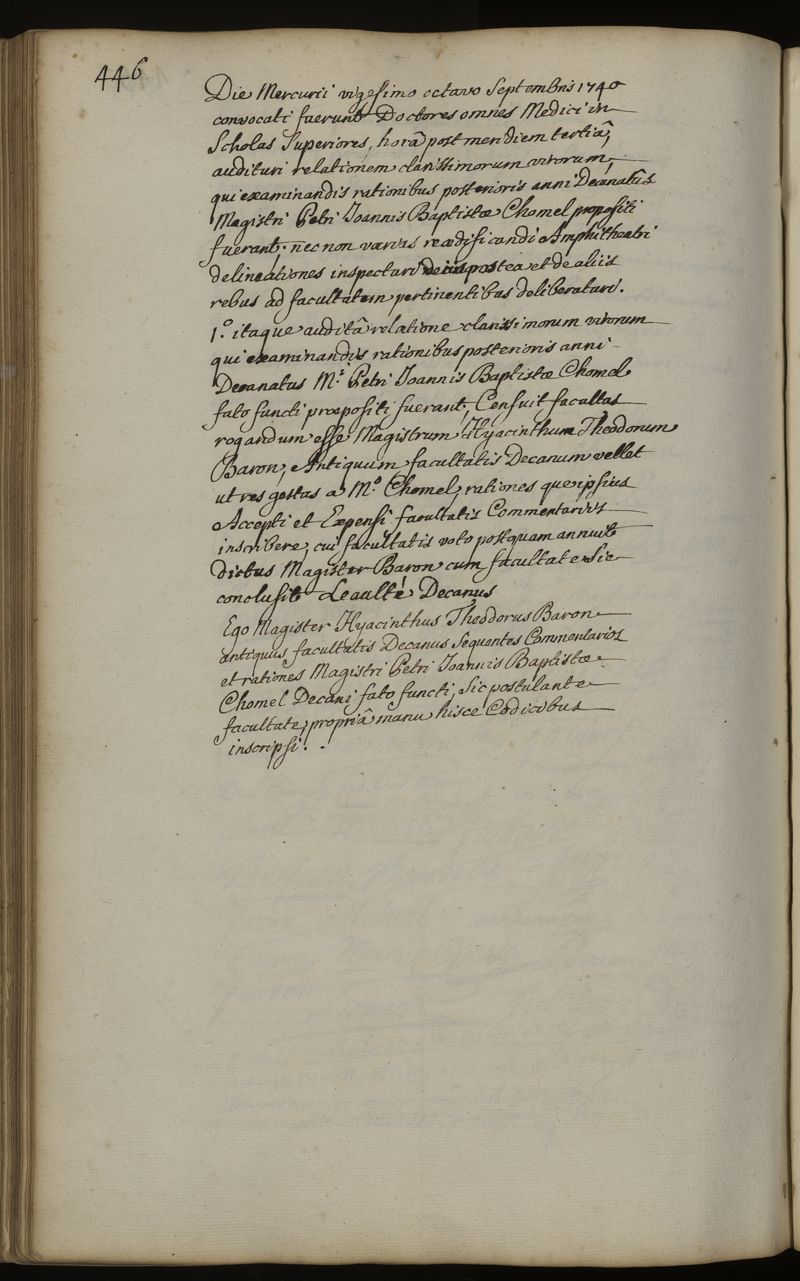 446
Die Mercurii vigesimo octavo Septembris 1740
convocati fuerunt Doctores omnes Medici in
Scholas Superiores, horâ post meridiem tertiâ,
audituri relationem clarissimorum virorum,
qui examinandis rationibus posterioris anni Decanatûs
Magistri Petri Joannis Baptistæ Chomel propositi
fuerant; nec non varias reædificandi Amphitheatri
delineationes inspecturi de iis postea et de aliis
rebus ad facultatem pertinentibus deliberaturi.
1.º itaque auditâ relatione clarissimorum virorum
qui examinandis rationibus posterioris anni
Decanatus M.i Petri Joannis Baptistæ Chomel
fato functi præpositi fuerant, Censuit facultas
rogandum esse Magistrum Hyacinthum Theodorum
Baron, Antiquum facultatis Decanum vellet
ut res gestas a M.º Chomel, rationes que ipsius
Accepti et Expensi facultatis Commentariis
inscribere, cui facultatis voto postquam annuit
dictus Magister Baron cum facultate sic
conclusit Leaulté Decanus
Ego Magister Hyacinthus Theodorus Baron
antiquus facultatis Decanus Sequentes Commentarios
et rationes Magistri Petri Joannis Baptistæ
Chomel Decani fato functi, Sic postulante
facultate, propriâ manu hisce Codicibus
inscripsi. .